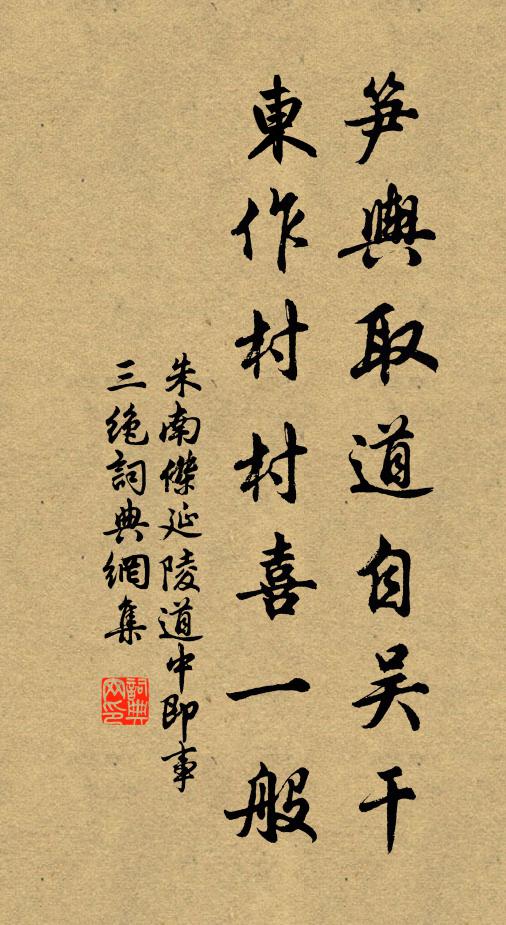 笋輿取道自吴干
東作村村喜一般
朱南傑延陵道中即事
三绝詞典網集
詞典網印